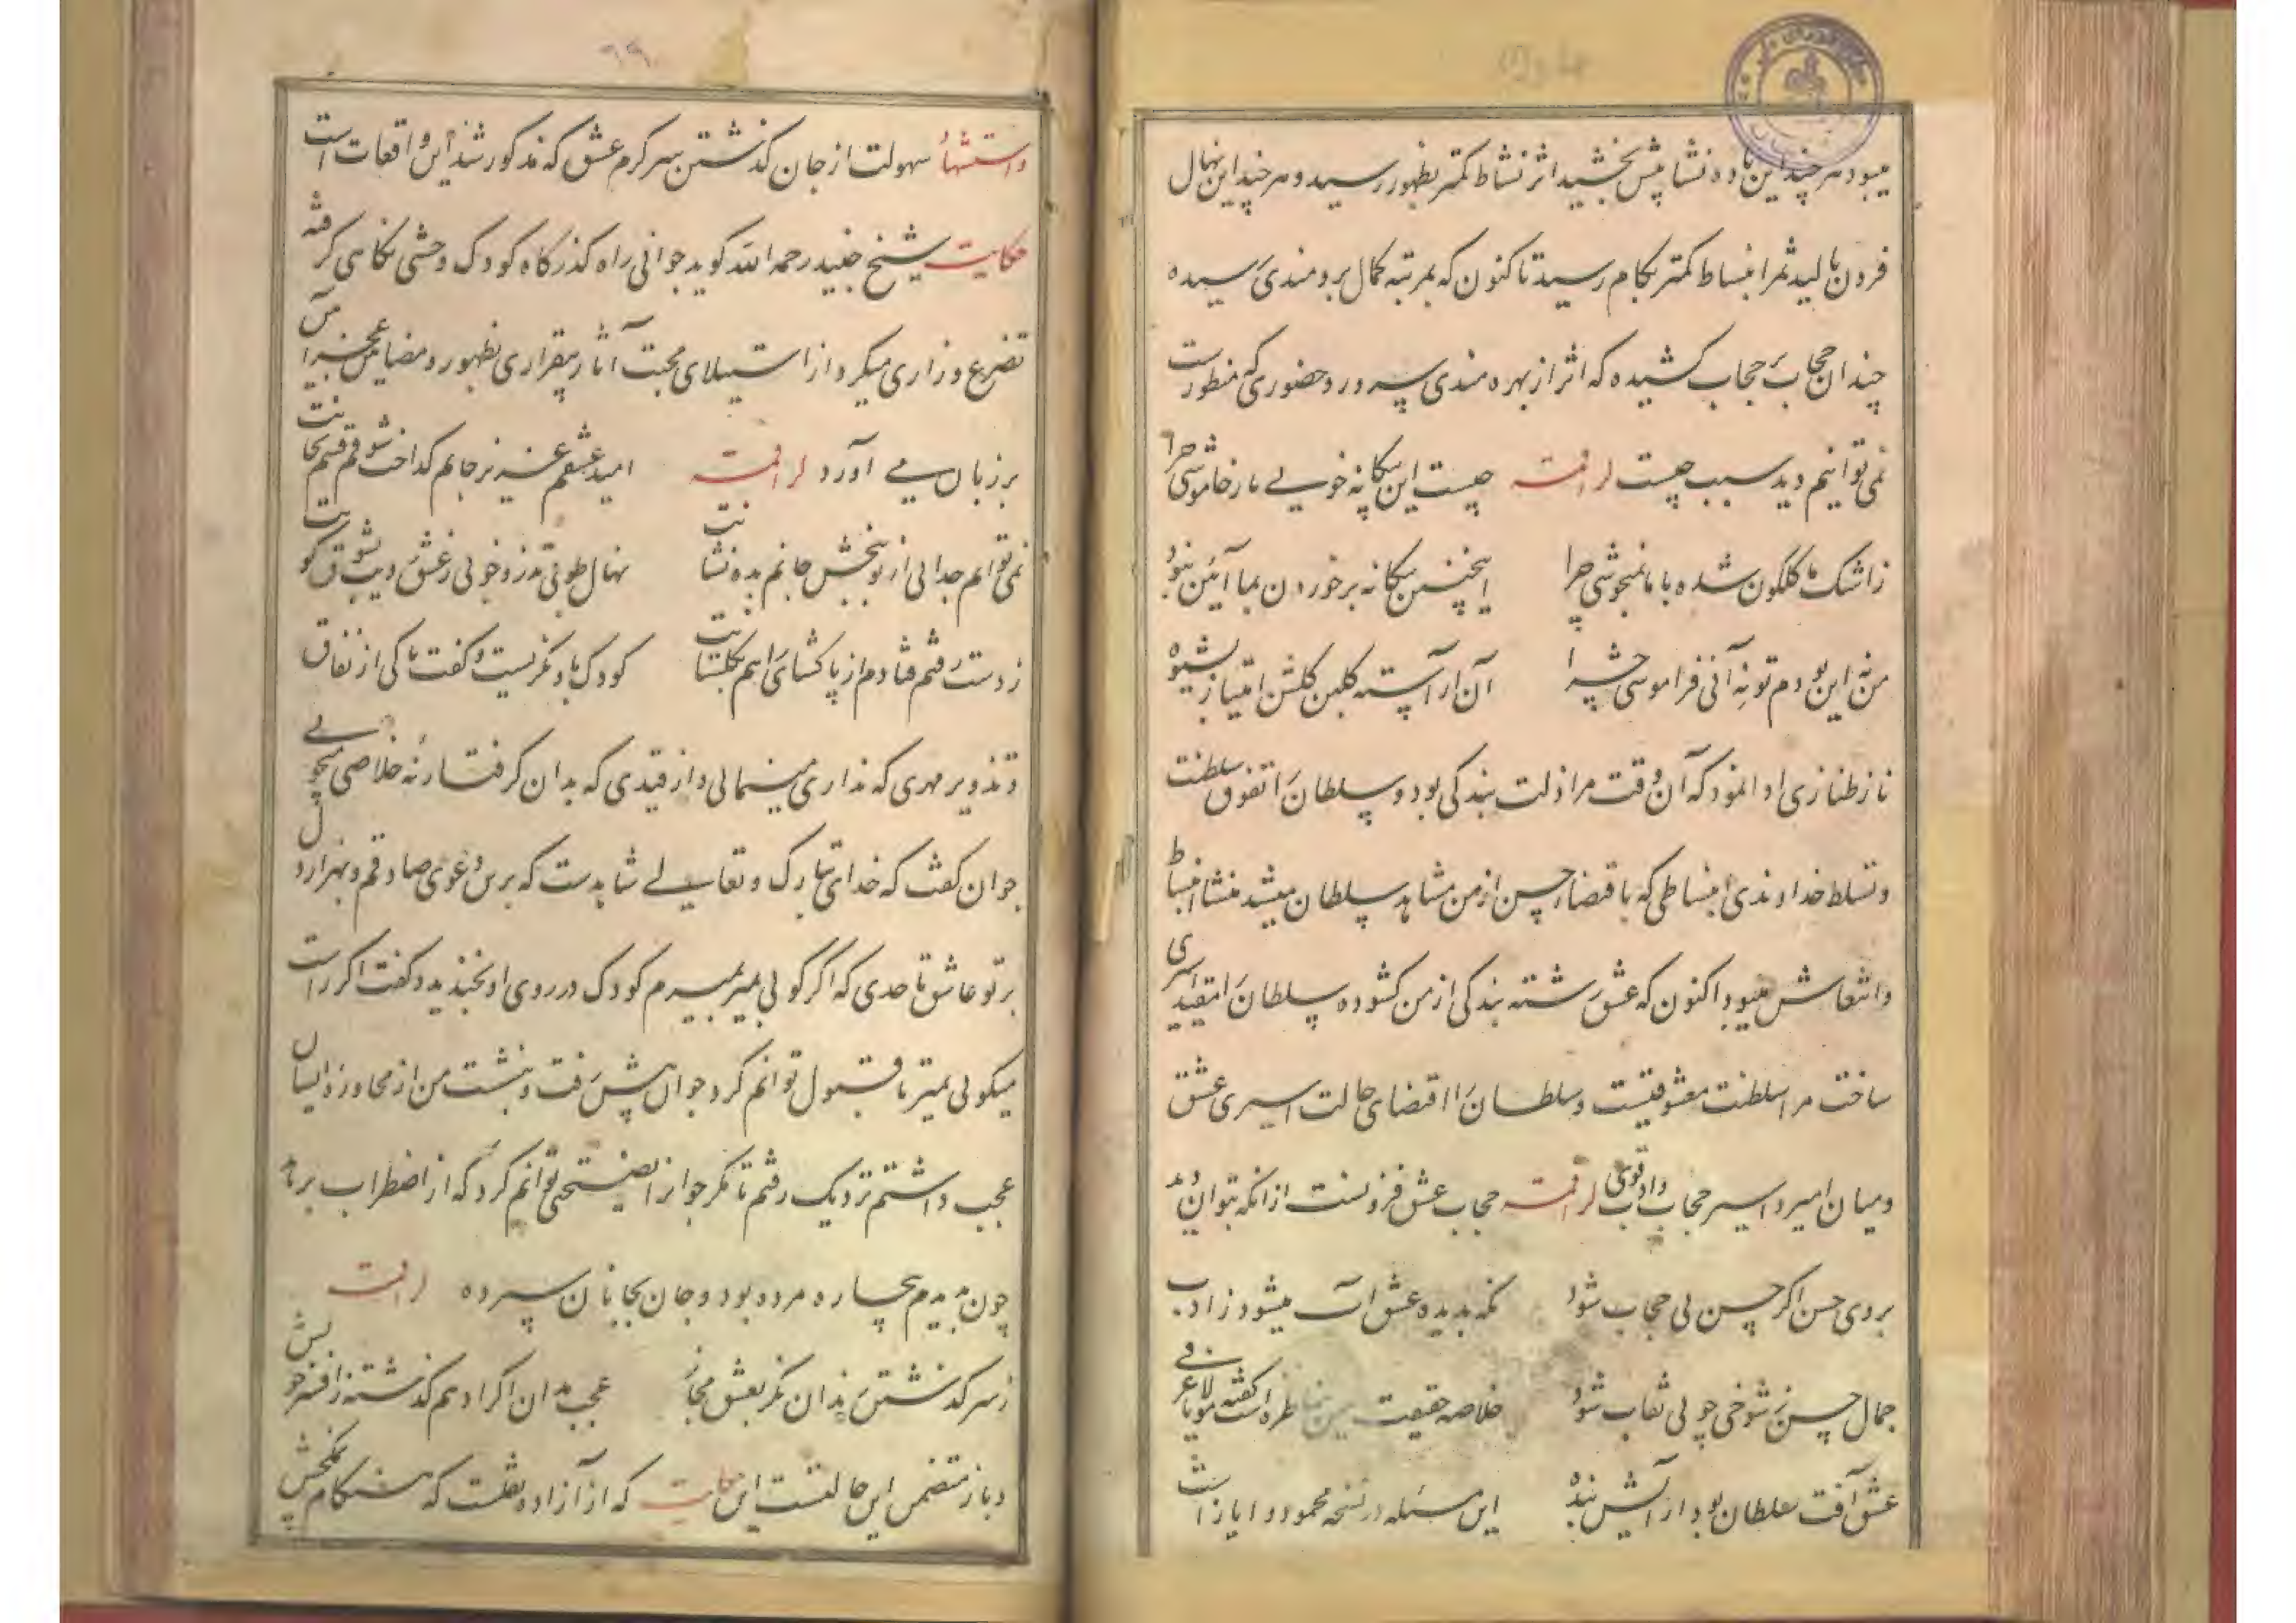 میبود هر چند این باده نشا بیش بخشید اثر نشاط کمتر بظهور رسید و هر چند این نهال
فزون بالید ثمر انبساط کمتر بکام رسید تا کنون که بمرتبه کمال برومندی رسیده
چندان حجاب بر حجاب کشیده که اثر از بهره مندی سرور و حضوری که منظورست
نمی توانیم دید سبب چیست لرافته چیست این بیگانه خویی با ز خاموشی چرا
زاشک ما گلگون شده با ما نمیجوشی چرا اینچنین بیگانه برخوردن بما آئین نبود
من نه این بودم تو نه آنی فراموشی چرا آن آراسته گلبن گلشن امتیاز بشیوه
ناز طنازی ادا نمود که آن وقت مرا ذلت بندگی بود و سلطان را تفوق سلطنت
و تسلط خداوندی انبساطی که باقتضاء حسن از من مشاهد سلطان میشد منشاء انبساط
و انتعاش میبود اکنون که عشق رشته بندگی از من گشوده سلطان را مقید اسیری
ساخت مرا سلطنت معشوقیست و سلطان را اقتضای حالت اسیری عشق
و میان امیر و اسیر حجاب ادب وادی قوی لرافته حجاب عشق فزونست ازانکه بتوان دید
بروی حسن اگر حسن بی حجاب شود نگه بدیده عشق آب میشود ز ادب
جمال حسن ز شوخی چو بی نقاب شود خلاصه حقیقت این مناظره است گفته مولانا عرفی
عشق آفت سلطان بود ار آیش بنده این مسئله در نسخه محمود و ایاز است
۶۹
واستشهاد سهولت از جان گذشتن سرگرم عشق که مذکور شد این واقعات است
حکایت شیخ جنید رحمه الله گوید جوانی راه گذرگاه کودک وحشی نگاهی گرفته
تضرع و زاری میکرد از استیلای محبت آثار بیقراری بظهور و مضامین عجز آمیز
بر زبان می آورد لرافته امید عشقم غنیر جانم گداخت شوقم قسم بجانت
نمی توانم جدایی از تو ببخش جانم بده نشانت نهال طوبی تذرو خوبی ز عشق دیبت بشوق کویت
ز دست رفتم فتادم از پا گشای راهم بگلستانت کودک باو نگریست و گفت تا کی از نفاق
و تذویر مهری که نداری مینمایی و از قیدی که بدان گرفتار نه خلاصی میجویی
جوان گفت که خدای تبارک و تعالی شاهدست که برین دعوی صادقم و بهزار دل
بر تو عاشق تا حدی که اگر گویی بمیر بمیرم کودک در روی او بخندید و گفت اگر راست
میگویی بمیر تا قبول توانم کرد جوان پیش رفت و بنشست من از محاوره ایشان
عجب داشتم نزدیک رفتم تا مگر جوانرا نصیحتی توانم کرد که از اضطراب برآید
چون دیدم بیچاره مرده بود و جان بجانان سپرده لرافته
ز سر گذشتن رندان نگر بعشق مجاز عجب مدان اگر ادهم گذشته ز افسر خویش
و باز متضمن این حالتست این حکایت که از آزاده نقلست که هنگام